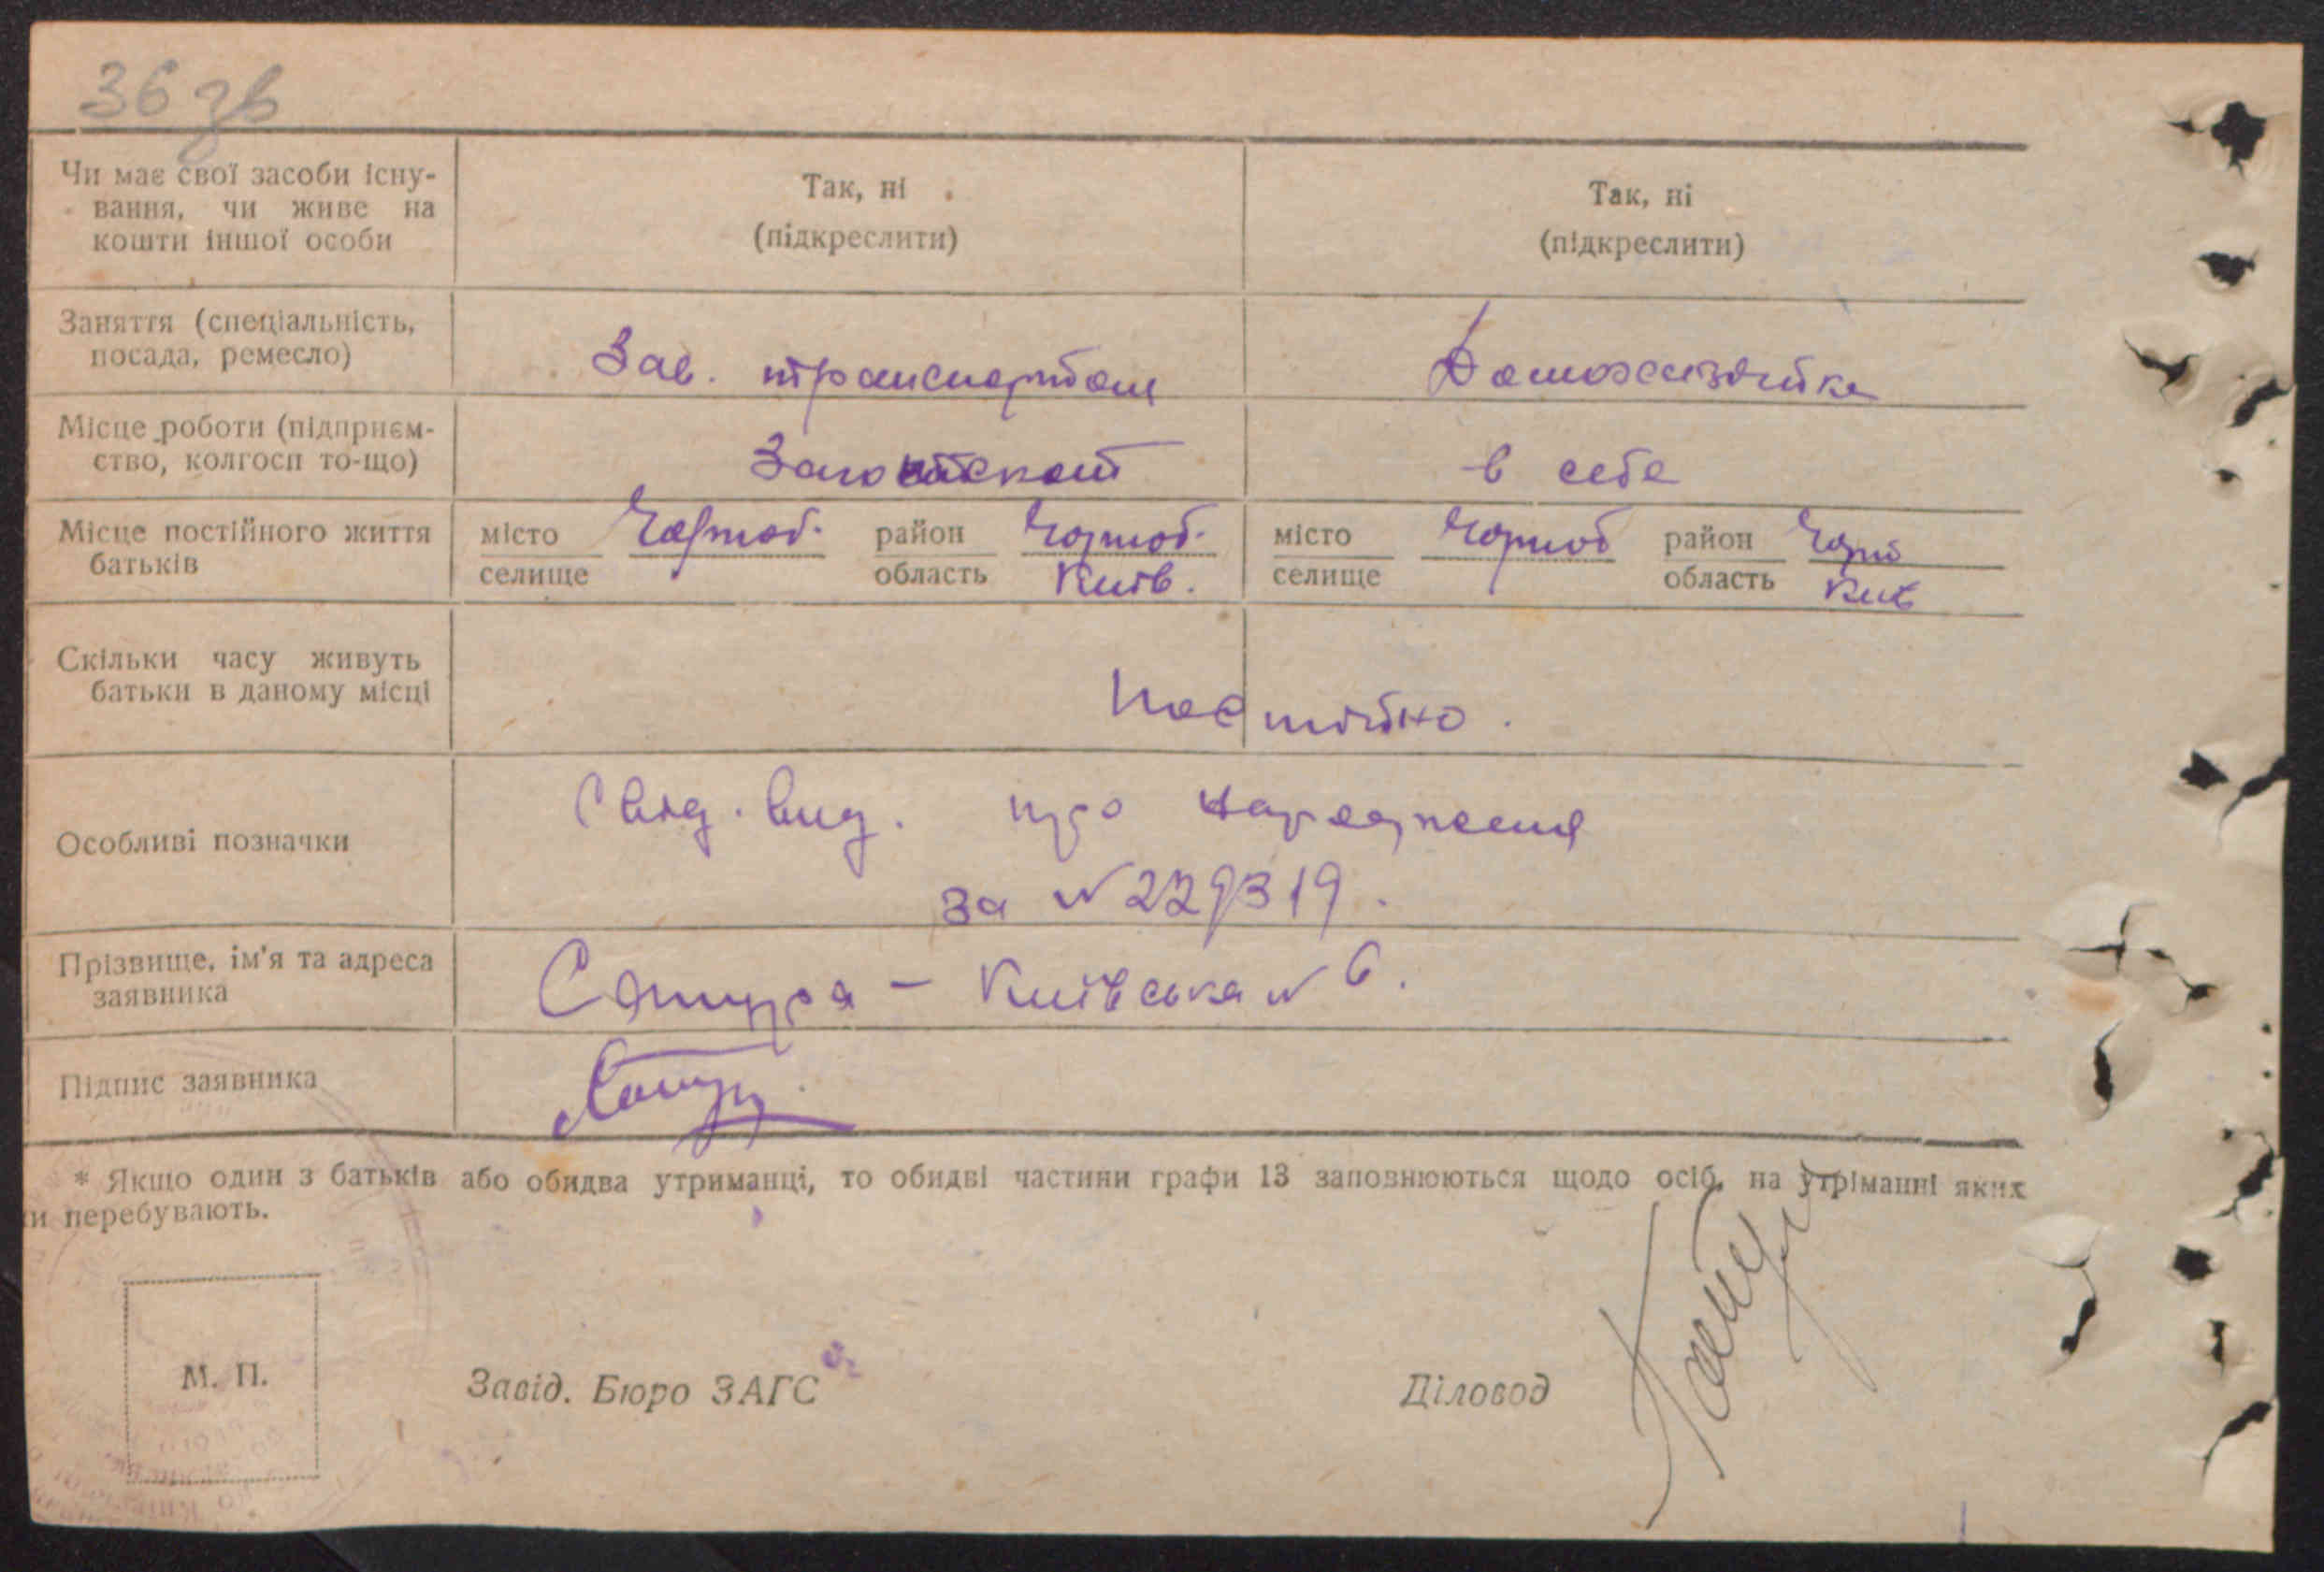 36 зв
Чи має свої засоби існу-
вання, чи живе на
кошти іншої особи
Так, ні
(підкреслити)
Так, ні
(підкреслити)
Заняття (спеціальність,
посада, ремесло)
Зав. транспортом
Домохозяйка
Місце роботи (підприєм-
ство, колгосп то-що)
в себе
Місце постійного життя
батьків
місто
селище
Чорноб.
район
область
Чорноб.
Київ.
місто
селище
Чорноб
район
область
Чорн
Київ
Скільки часу живуть
батьки в даному місці
Постійно.
Особливі позначки
Свід. вид. про народження
за N 229319.
Прізвище, ім'я та адреса
заявника
Київська N 6.
Підпис заявника
* Якщо один з батьків або обидва утриманці, то обидві частини графи 13 заповнюються щодо осіб, на утріманні яких
и перебувають.
М. П.
Завід. Бюро ЗАГС
Діловод